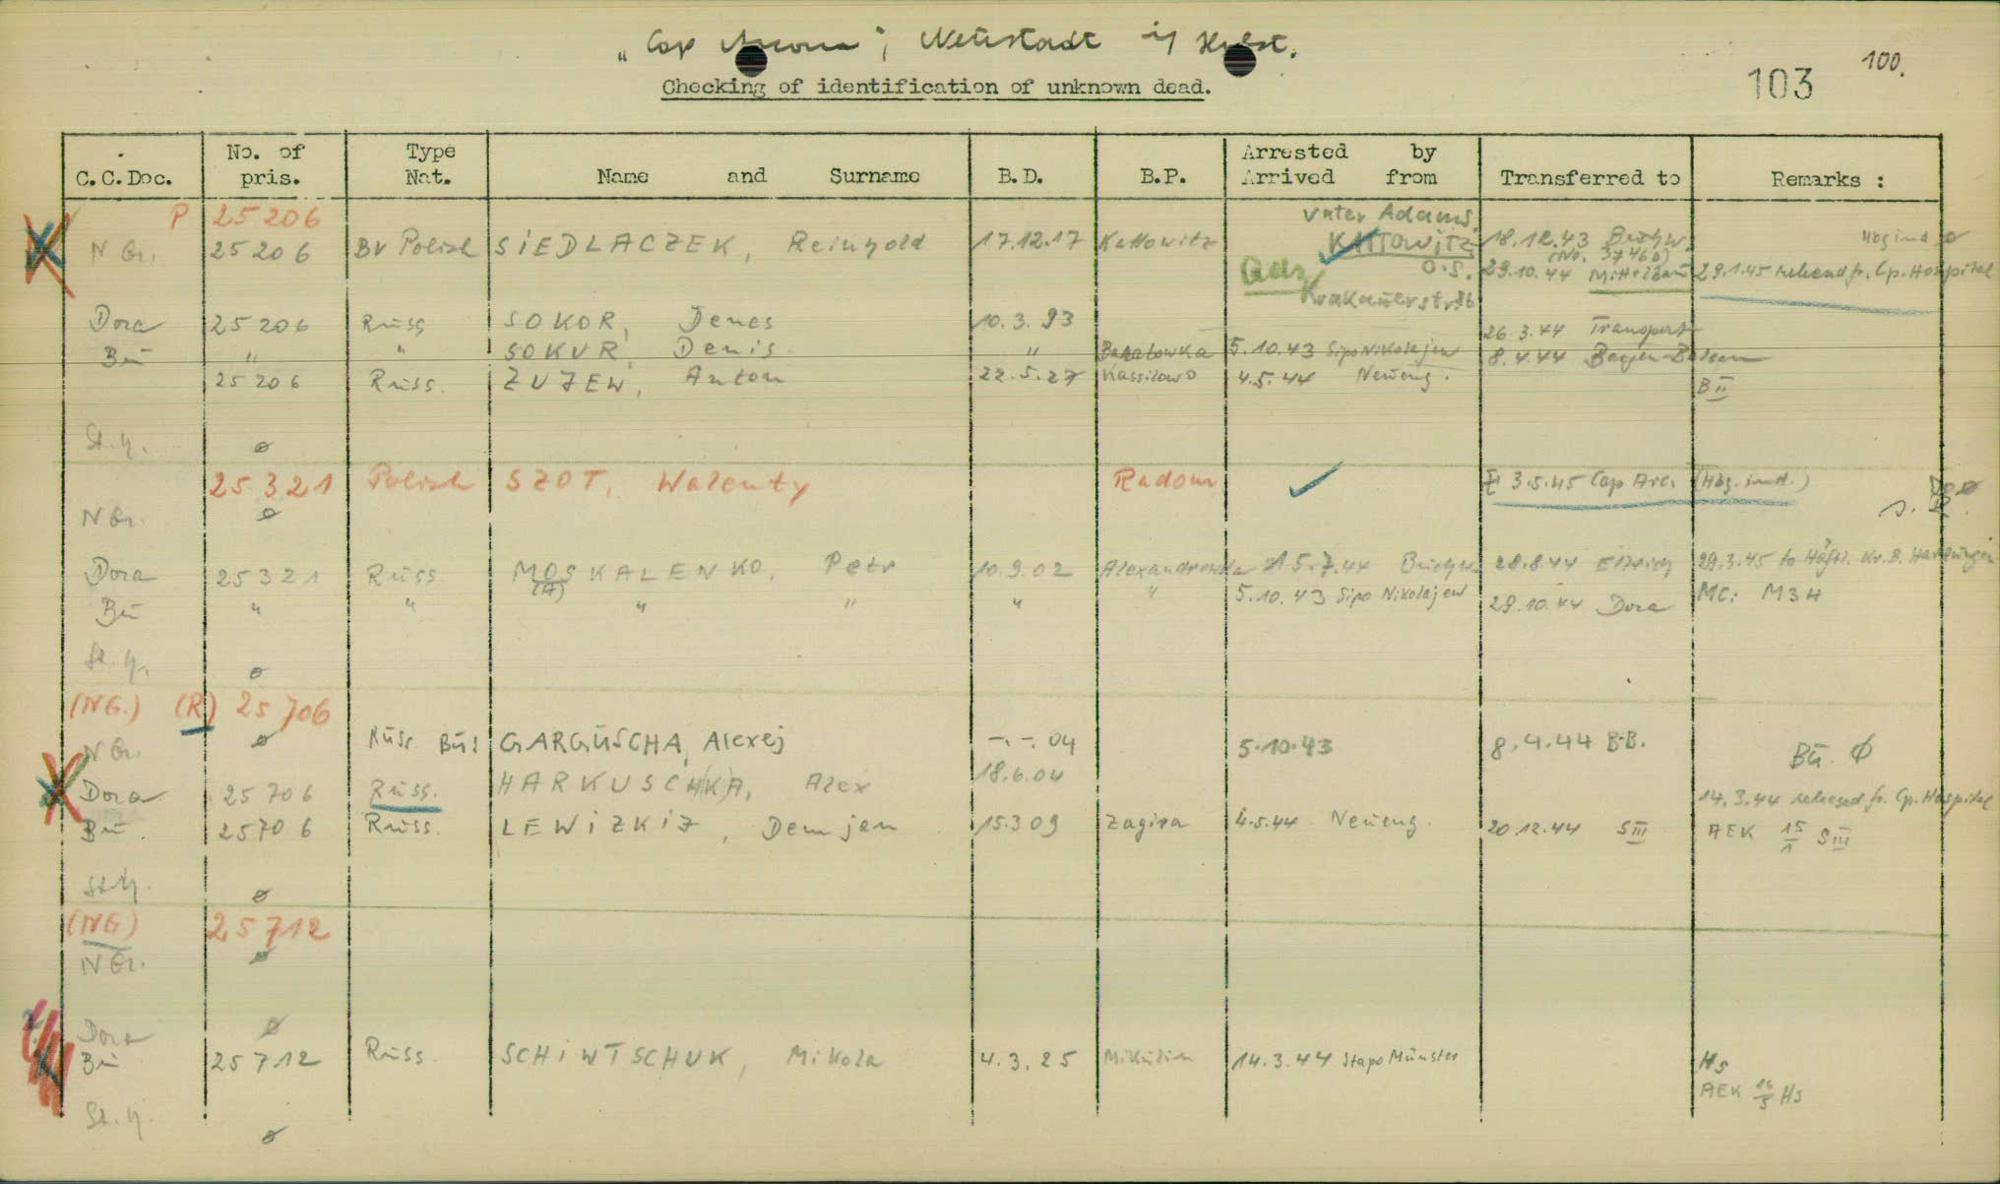 "Cap Arcona"; Neustadt i/ Holst.
100.
103
Checking of identification of unknown dead.
C.C.Doc. No. of pris. Type Nat. Name and Surname B.D. B.P. Arrested by Arrived from Transferred to Remarks :
P 25206 Vater Adams,
N Gr. 25206 BV Polish SIEDLACZEK, Reinhold 17.12.17 Kattowitz KATTOWITZ 18.12.43 Buchw.
O.S. 29.10.44 Mittelbau 29.1.45 released fr. Cp. Hospital
Krakauerstr.
Dora 25206 Russ SOKOR, Denes 10.3.93 26.3.44 Transport
Bu " " SOKUR, Denis " 5.10.43 Sipo Nikolajew 8.4.44 Bergen-Belsen
25206 Russ. ZUJEW, Anton 22.5.27 Kassilowo 4.5.44 Neueng. B II
St.H. ø
25321 Polish SZOT, Walenty Radom ✓ 3.5.45 Cap Arc. (Hbg. ind.)
N Gr. ø
Dora 25321 Russ MOSKALENKO, Petr 10.9.02 15.7.44 Buchw 28.8.44 Ellrich 29.3.45 to Häftl. Kr. B. Harzungen
(A)
Bu " " " " " " 5.10.43 Sipo Nikolajew 29.10.44 Dora MC: M3H
St.H. ø
(NG.) (R) 25706
N Gr. ø Russ Bu! GARGUSCHA, Alexej -.-.04 5.10.43 8.4.44 B-B. Bu. Ø
Dora 25706 Russ. HARKUSCH(K)A, Alex 18.6.04 14.3.44 released fr. Cp. Hospital
Bu. 25706 Russ. LEWIZKIJ, Demjan 15.3.09 Zagira 4.5.44 Neueng. 20.12.44 S III AEK 15/1 S III
St.H. ø
(NG) 25712
N Gr. ø
Dora ø
Bu 25712 Russ. SCHIWTSCHUK, Mikola 4.3.25 Mikulin 14.3.44 Stapo Münster Hs
AEK 16/3 Hs
St.H. ø